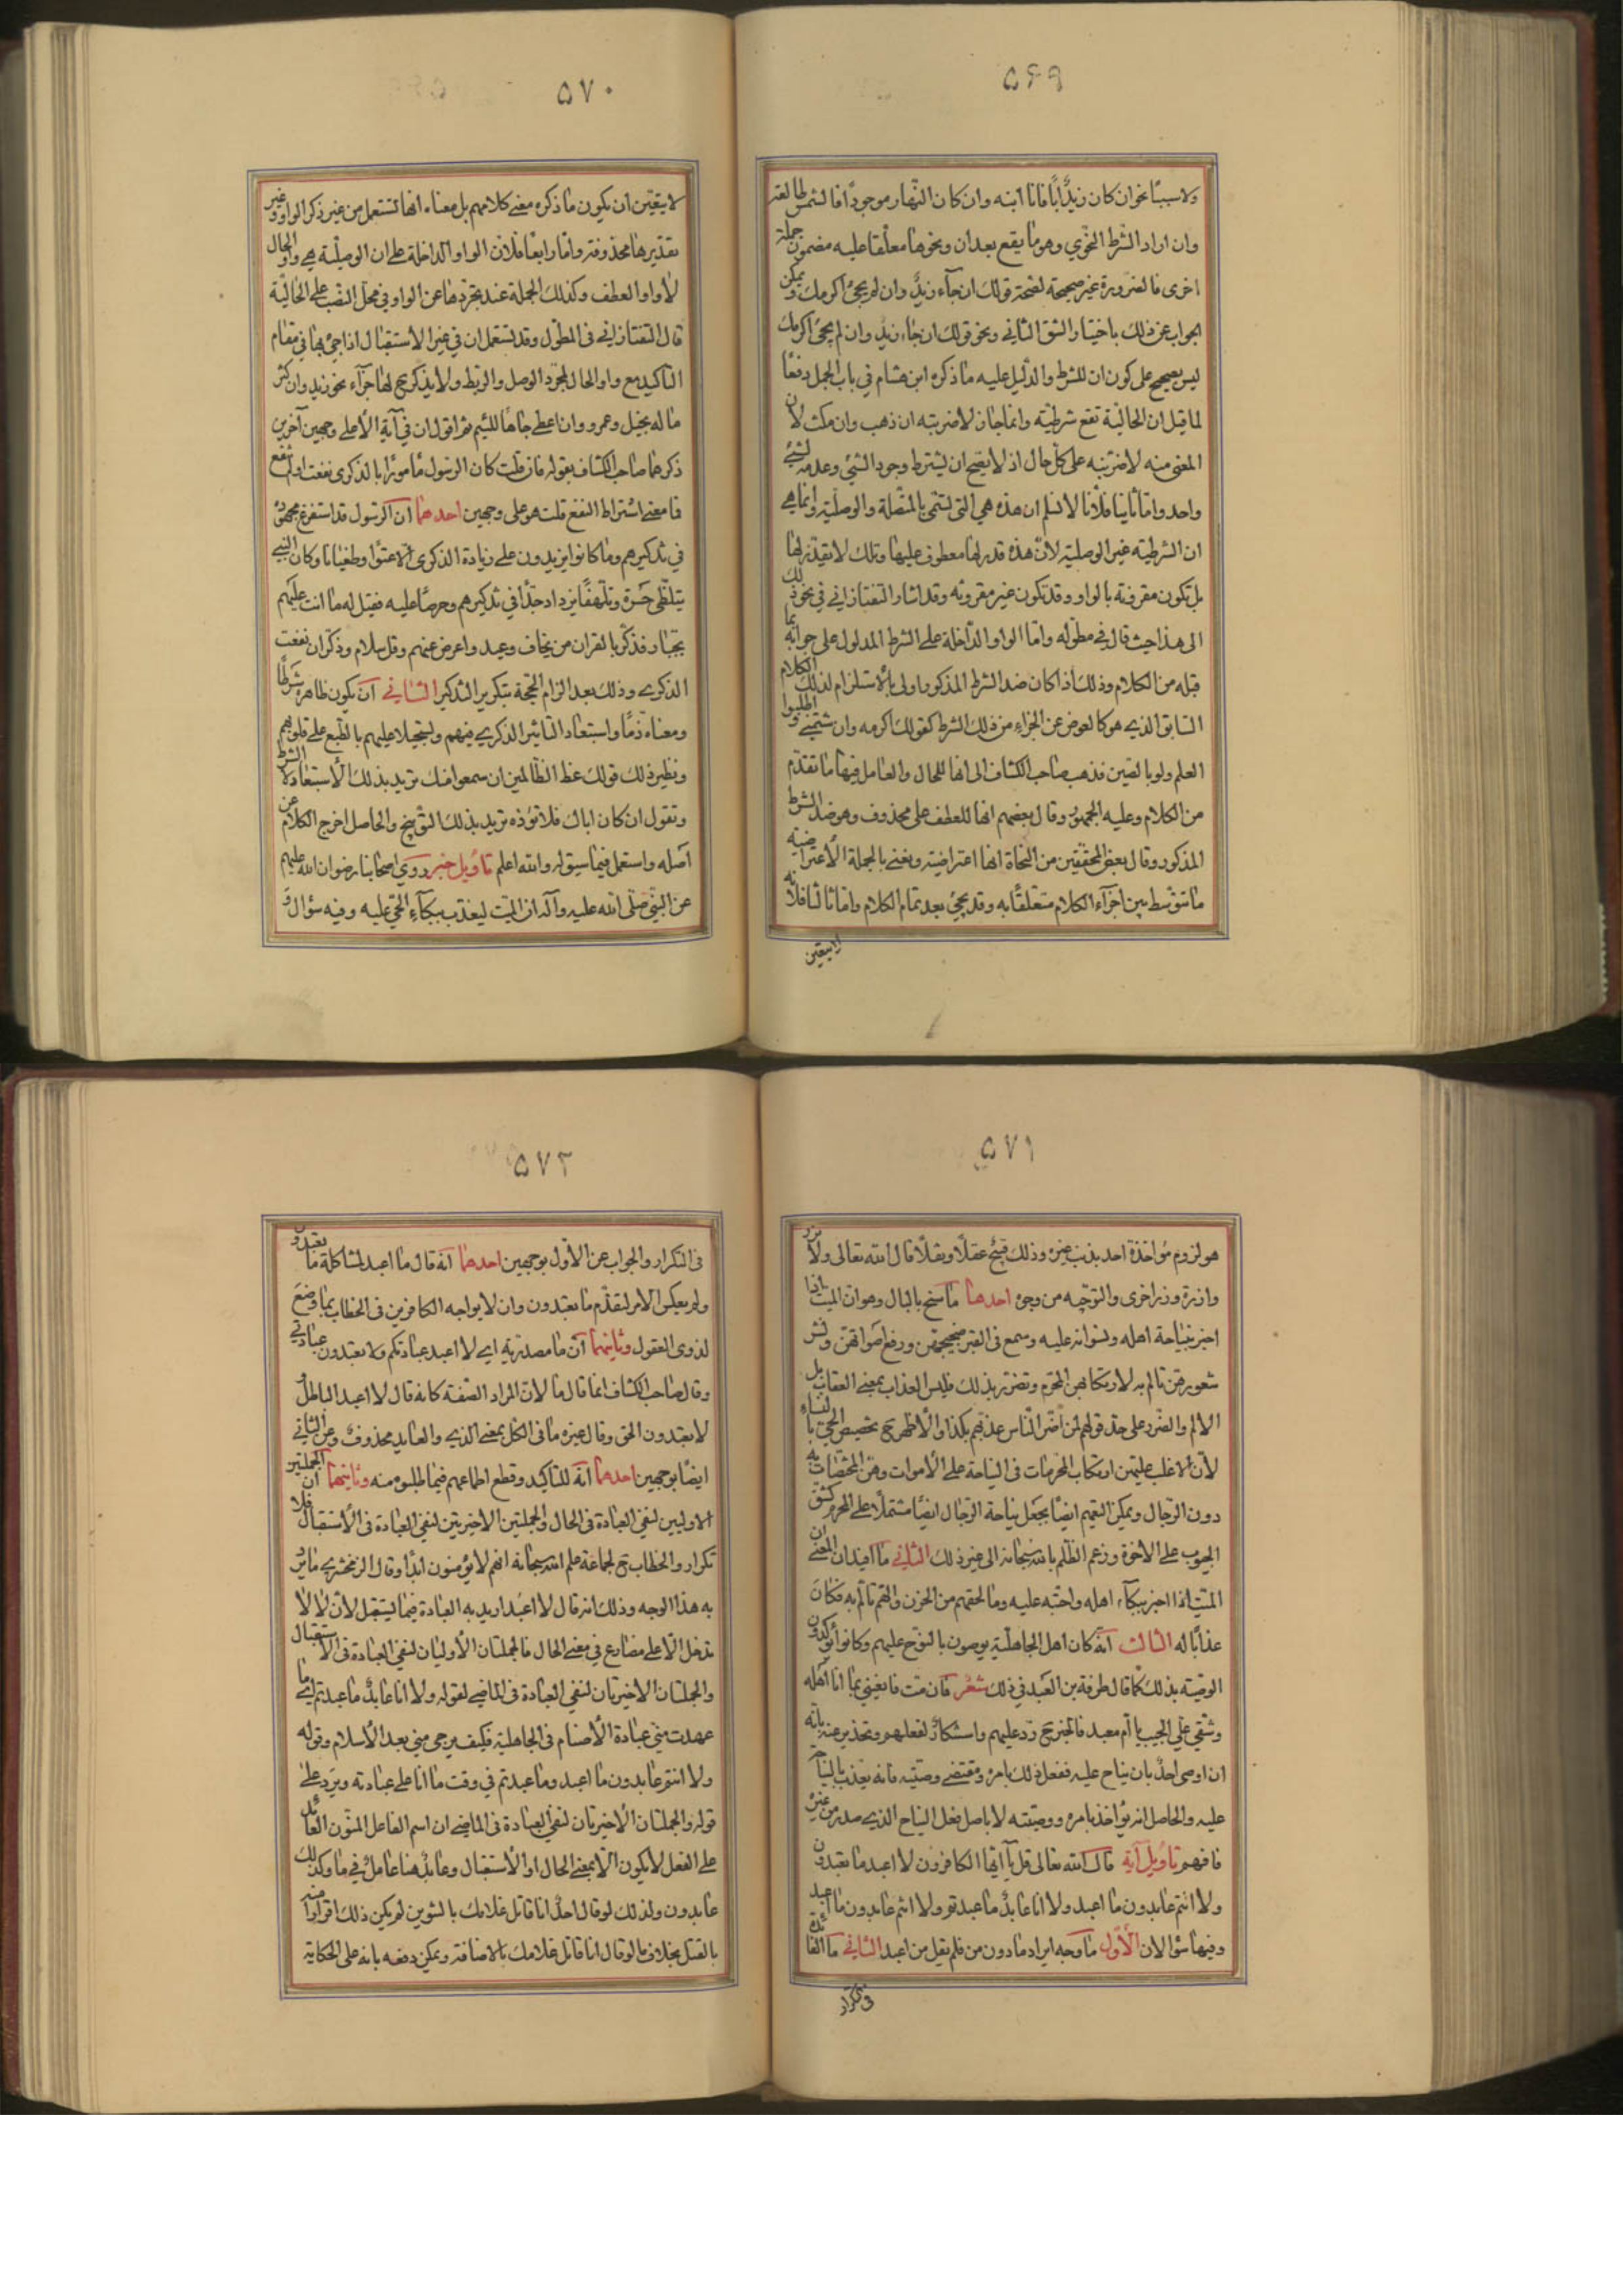 ۵۶۹
ولا سببًا نحو ان كان زيدٌ ابًا فانا ابنه وان كان النّهار موجودًا فالشمس طالعة
وان اراد الشّرط النّحوي وهو ما يقع بعد ان ونحوها معلّقا عليه مضمون جملة
اخرى فالضرورة غير صحيحة لصحّة قولك ان جآء زيدٌ وان لم يجئ اكرمك ويمكن
الجواب عن ذلك باختيار الشق الثاني ونحو قولك ان جاء زيدٌ وان لم يجئ اكرمك
ليس بصحيح على كون ان للشرط والدّليل عليه ما ذكره ابن هشام في باب الجمل دفعًا
لما قيل ان الحاليّة تقع شرطيّة وانما جاز لاضربنه ان ذهب وان مكث لان
المعنى منه لاضربنه على كلّ حال اذ لا يصحّ ان يشترط وجود الشئ وعدمه لشئ
واحد وامّا ثانيا فلانّا لا نسلم ان هذه هي التي تسمّى بالمتّصلة والوصليّة وانما هي
ان الشرطيّة غير الوصليّة لانّ هذه قدر لها معطوف عليها وتلك لا يقدّر لها
بل تكون مقرونة بالواو وقد تكون غير مقرونة وقد اشار التفتازاني في نحو ذلك
الى هذا حيث قال في مطوّله وامّا الواو الدّاخلة على الشرط المدلول على جوابه بما
قبله من الكلام وذلك اذا كان ضد الشرط المذكور اولى بالاستلزام لذلك الكلام
السابق الذي هو كالعوض عن الجزاء من ذلك الشرط كقولك اكرمه وان شتمني واطلبوا
العلم ولو بالصين فذهب صاحب الكشاف الى انها للحال والعامل فيها ما تقدّم
من الكلام وعليه الجمهور وقال بعضهم انها للعطف على محذوف وهو ضد الشرط
المذكور وقال بعض المحققين من النحاة انها اعتراضية ونعني بالجملة الاعتراضية
ما تتوسّط بين اجزآء الكلام متعلّقًا به وقد يجئ بعد تمام الكلام وامّا ثالثا فلانّه
لا يتعيّن
۵۷۰
لا يتعيّن ان يكون ما ذكره معنى كلامهم بل معناه انها تستعمل من غير ذكر الواو وغير
تقديرها محذوفة وامّا رابعًا فلانّ الواو الداخلة على ان الوصليّة هي واو الحال
لا واو العطف وكذلك الجملة عند تجرّدها عن الواو في محلّ النصب على الحاليّة
قال التفتازاني في المطوّل وقد تستعمل ان في غير الاستقبال اذا جئ بها في مقام
التاكيد مع واو الحال لمجرّد الوصل والربط ولا يذكر ح لها جزآء نحو زيد وان كثر
ما له بخيل وعمرو وان اعطي جاهًا لئيم ثمّ اقول ان في آية الاعلى وجهين آخرين
ذكرهما صاحب الكشاف بقوله فان قلت كان الرسول مأمورًا بالذكرى نفعت او لم تنفع
فما معنى اشتراط النفع قلت هو على وجهين احدهما ان الرسول قد استفرغ مجهوده
في تذكيرهم وما كانوا يزيدون على زيادة الذكرى الّا عتوًّا وطغيانا وكان النبي
يتلظّى حسرة وتلهّفًا يزداد جدًّا في تذكيرهم وحرصًا عليه فقيل له ما انت عليهم
بجبّار فذكّر بالقران من يخاف وعيد واعرض عنهم وقل سلام وذكّر ان نفعت
الذكرى وذلك بعد الزام الحجّة بتكرير التذكير الثاني ان يكون ظاهره شرطًا
ومعناه ذمًّا واستبعاد التأثير الذكرى فيهم وتسجيلا عليهم بالطبع على قلوبهم
ونظير ذلك قولك عظ الظالمين ان سمعوا منك تريد بذلك الاستبعاد لا الشرط
وتقول ان كان اباك فلا تؤذه تريد بذلك التوبيخ والحاصل اخرج الكلام عن
اصله واستعمل فيما سيق له والله اعلم تأويل خبر روى اصحابنا رضوان الله عليهم
عن النبيّ صلّى الله عليه وآله ان الميّت ليعذّب ببكآء الحيّ عليه وفيه سؤال و
۵۷۱
هو لزوم مؤاخذة احد بذنب غيره وذلك قبيح عقلًا ونقلًا قال الله تعالى ولا تزر
وازرة وزر اخرى والتوجّيه من وجوه احدها ما سنح بالبال وهو ان الميّت اذا
اخبر بنياحة اهله ونسوانه عليه وسمع في القبر ضجيجهنّ ورفع اصواتهنّ ونشر
شعورهنّ تالم به لارتكابهنّ المحرّم وتضرّر بذلك فليس العذاب بمعنى العقاب بل
الالم والضّرر على حدّ قولهم لمن اضرّ النّاس عذّبهم بكذا والاظهر ح تخصيص الحيّ بالنساء
لان الاغلب عليهنّ ارتكاب المحرمات في النياحة على الاموات وهنّ المختصّات به
دون الرّجال ويمكن التعميم ايضًا بجعل نياحة الرّجال ايضًا مشتملًا على المحرم كشق
الجيوب على الاخوة وزعم الظّلم بالله سبحانه الى غير ذلك الثاني ما افيد ان المعنى
الميّت اذا اخبر ببكآء اهله واحبّه عليه وما لحقهم من الحزن والهمّ تالّم به فكان
عذابًا له الثالث انّه كان اهل الجاهليّة يوصون بالنوح عليهم وكانوا يؤكدون
الوصيّة بذلك كما قال طرفة بن العبد في ذلك شعر فان متّ فانعيني بما انا اهله
وشقّي عليّ الجيب يا امّ معبد فالخبر ح ردّ عليهم واستنكار لفعلهم وتحذير عنه بانّه
ان اوصى احدٌ بان يناح عليه ففعل ذلك بامره ومقتضى وصيّته فانه يعذّب بالنياح
عليه والحاصل انه يؤاخذ بامره ووصيّته لا باصل فعل النياح الذي صدر من غيره
فافهم تأويل آية قال الله تعالى قل يا ايّها الكافرون لا اعبد ما تعبدون
ولا انتم عابدون ما اعبد ولا انا عابدٌ ما عبدتم ولا انتم عابدون ما اعبد
وفيها سؤالان الاوّل ما وجه ايراد ما دون من فلم يقل من اعبد الثاني ما الفائدة
في تكرار
۵۷۲
في التكرار والجواب عن الاوّل بوجهين احدهما انه قال ما اعبد لمشاكلة ما تعبدون
ولم يعكس الامر لتقدّم ما تعبدون وان لا يواجه الكافرين في الخطاب بما وضع
لذوى العقول وثانيهما ان ما مصدريّة اى لا اعبد عبادتكم ولا تعبدون عبادتي
وقال صاحب الكشاف انما قال ما لانّ المراد الصّفة كانه قال لا اعبد الباطل و
لا تعبدون الحق وقال غيره ما في الكلّ بمعنى الذى والعايد محذوف وعن الثاني
ايضًا بوجهين احدهما انه للتاكيد وقطع اطماعهم فيما طلبوه منه وثانيهما ان الجملتين
الاوليين لنفي العبادة في الحال والجملتين الاخيرتين لنفي العبادة في الاستقبال فلا
تكرار والخطاب ح لجماعة علم الله سبحانه انهم لا يؤمنون ابدًا وقال الزمخشري ما يرد
به هذا الوجه وذلك انه قال لا اعبد اريد به العبادة فيما يستقبل لانّ لا لا
تدخل الّا على مضارع في معنى الحال فالجملتان الاوليان لنفي العبادة في الاستقبال
والجملتان الاخيرتان لنفي العبادة في الماضي لقوله ولا انا عابدٌ ما عبدتم اى ما
عهدت منّي عبادة الاصنام في الجاهلية فكيف يرجى منّي بعد الاسلام وقوله
ولا انتم عابدون ما اعبد وما عبدتم في وقت ما انا على عبادته ويرد على
قوله والجملتان الاخيرتان لنفي العبادة في الماضي ان اسم الفاعل المنوّن العامل
على الفعل لا يكون الّا بمعنى الحال او الاستقبال وعابدٌ هنا عاملٌ في ما وكذلك
عابدون ولذلك لو قال احدٌ انا قاتل غلامك بالتنوين لم يكن ذلك اقرارًا منه
بالقتل بخلاف ما لو قال انا قاتل غلامك بالاضافة ويمكن دفعه بانه على الحكاية